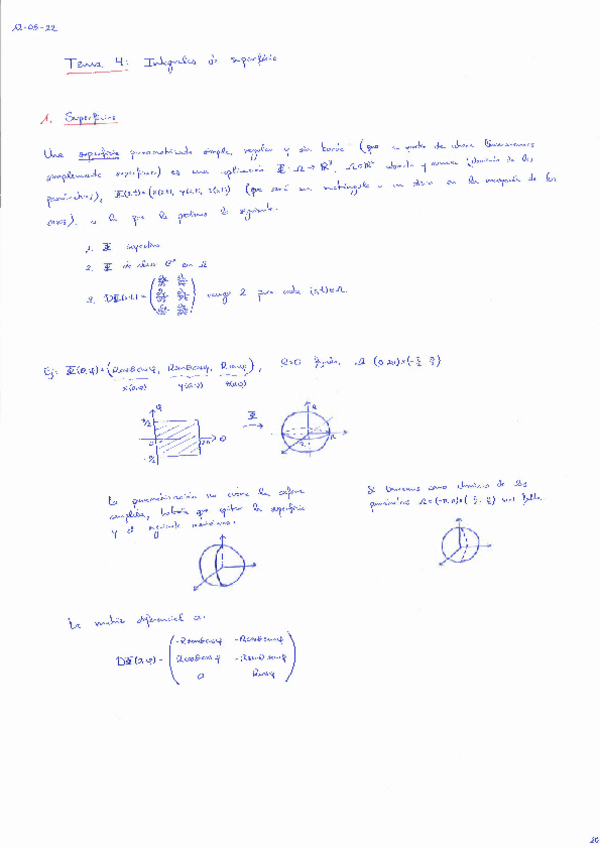 12-05-22
Tema 4: Integrales de superficie
1. Superficies
Una superficie parametrizada simple, regular y sin borde (que a partir de ahora llamaremos
simplemente superficie) es una aplicación Φ: Ω → ℝ³, Ω⊂ℝ² abierto y conexo (dominio de los
parámetros), Φ(s,t)=(x(s,t), y(s,t), z(s,t)) (que será un rectángulo o un disco en la mayoría de los
casos), a la que le pedimos lo siguiente:
1. Φ inyectiva
2. Φ de clase en Ω
3. DΦ(s,t) = rango 2 para cada (s,t)∈Ω.
Ej: Φ(θ,φ)=(Rcosθcosφ, Rsenθcosφ, Rsenφ), R>0 Ω=(0,2π)×(-π/2, π/2)
x(θ,φ) y(θ,φ) z(θ,φ)
φ
π/2
0 2π θ
-π/2
Φ
R
R
La parametrización no cubre la esfera
completa, habría que quitar la superficie
y el meridiano
Si tomamos como dominio de los
parámetros Ω=(-π,π)×(-π/2, π/2)
La matriz diferencial es:
DΦ(θ,φ)= ( -Rsenθcosφ -Rcosθsenφ
Rcosθcosφ -Rsenθsenφ
0 Rcosφ )
20